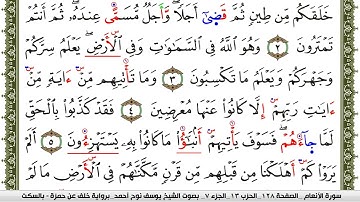 خَلَقَكُم مِّن طِينٍ ثُمَّ قَضَىٰٓ أَجَلًا ۖ وَأَجَلٌ مُّسَمًّى عِندَهُۥ ۖ ثُمَّ أَنتُمْ
تَمْتَرُونَ ٢ وَهُوَ ٱللَّهُ فِى ٱلسَّمَٰوَٰتِ وَفِى ٱلْأَرْضِ ۖ يَعْلَمُ سِرَّكُمْ
وَجَهْرَكُمْ وَيَعْلَمُ مَا تَكْسِبُونَ ٣ وَمَا تَأْتِيهِم مِّنْ ءَايَةٍ مِّنْ
ءَايَٰتِ رَبِّهِمْ إِلَّا كَانُوا۟ عَنْهَا مُعْرِضِينَ ٤ فَقَدْ كَذَّبُوا۟ بِٱلْحَقِّ
لَمَّا جَآءَهُمْ ۖ فَسَوْفَ يَأْتِيهِمْ أَنۢبَٰٓؤُا۟ مَا كَانُوا۟ بِهِۦ يَسْتَهْزِءُونَ ٥ أَلَمْ
يَرَوْا۟ كَمْ أَهْلَكْنَا مِن قَبْلِهِم مِّن قَرْنٍ مَّكَّنَّٰهُمْ فِى ٱلْأَرْضِ مَا لَمْ
سورة الأنعام _ الصفحة ١٢٨ _ الحزب ١٣ _ الجزء ٧ _ بصوت الشيخ يوسف نوح أحمد _ برواية خلف عن حمزة - بالسكت